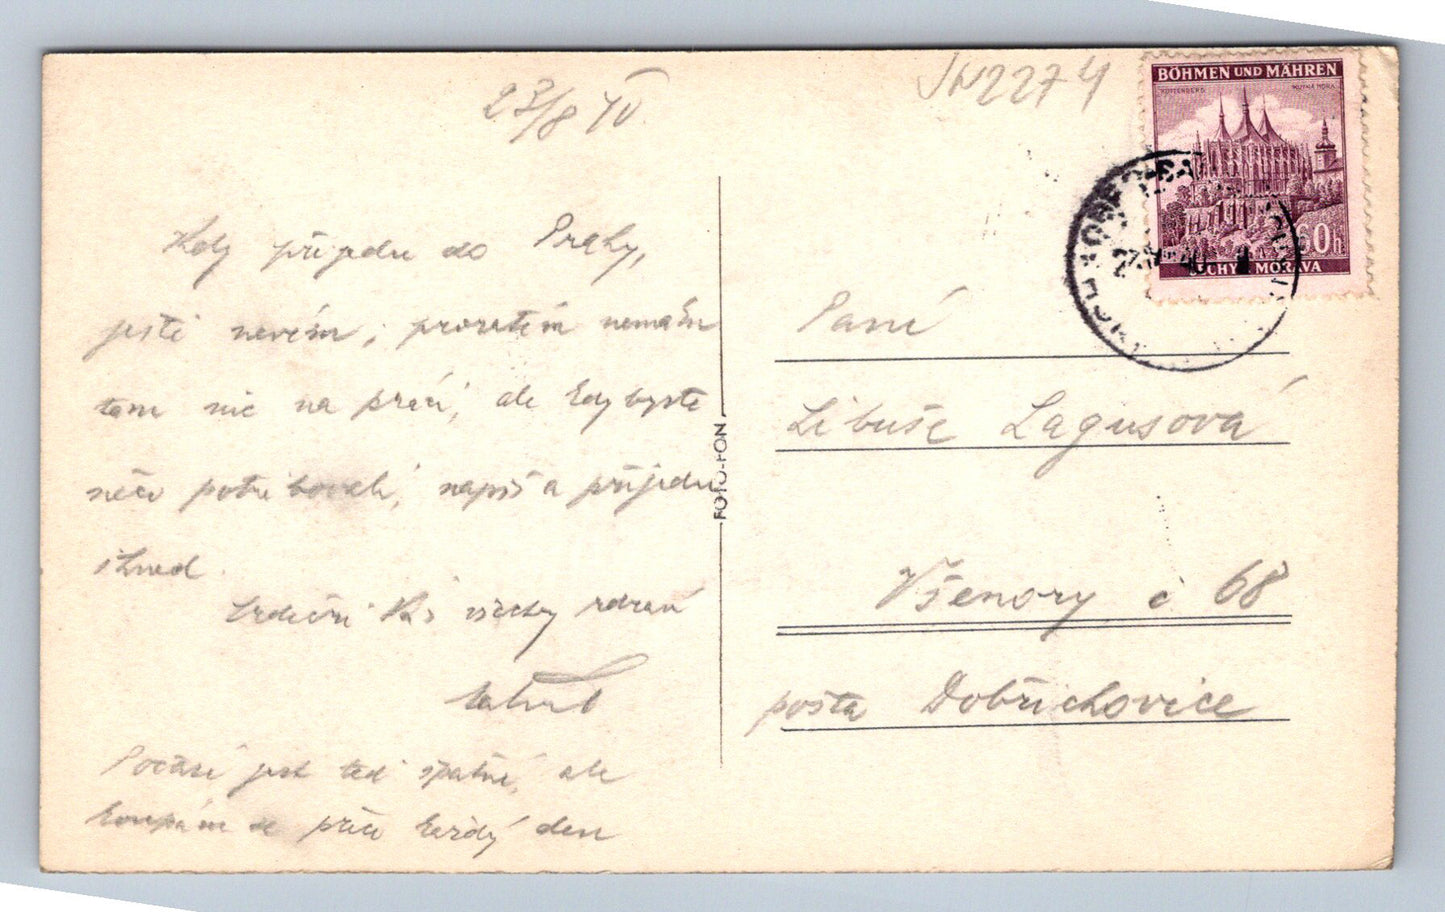 23/8 40
JN2274
BÖHMEN UND MÄHREN
KUTTENBERG KUTNÁ HORA
60h
ČECHY A MORAVA
Kdy přijedu do Prahy,
ještě nevím, prozatím nemám
tam nic na práci, ale kdybyste
něco potřebovali, napiš a přijedu
ihned.
Srdečně Vás všechny zdraví
Počasí jest teď špatné, ale
koupám se přece každý den
FOTO-FON
Paní
Libuše Lagusová
Všenory č 68
pošta Dobřichovice